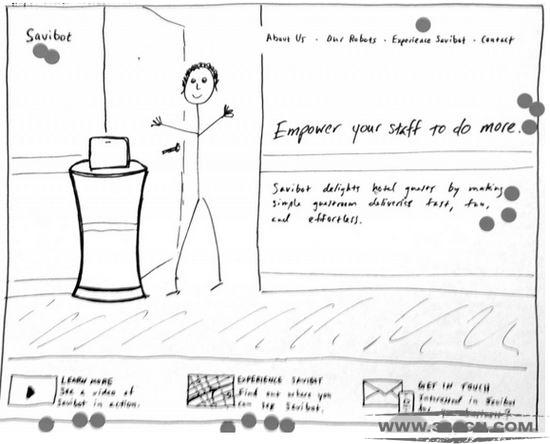 Savibot
About Us · Our Robots · Experience Savibot · Contact
Empower your staff to do more.
Savibot delights hotel guests by making
simple guestroom deliveries fast, fun,
and effortless.
LEARN MORE
See a video of
Savibot in action.
EXPERIENCE SAVIBOT
Find out where you
can see Savibot.
GET IN TOUCH
Interested in Savibot
for your business?